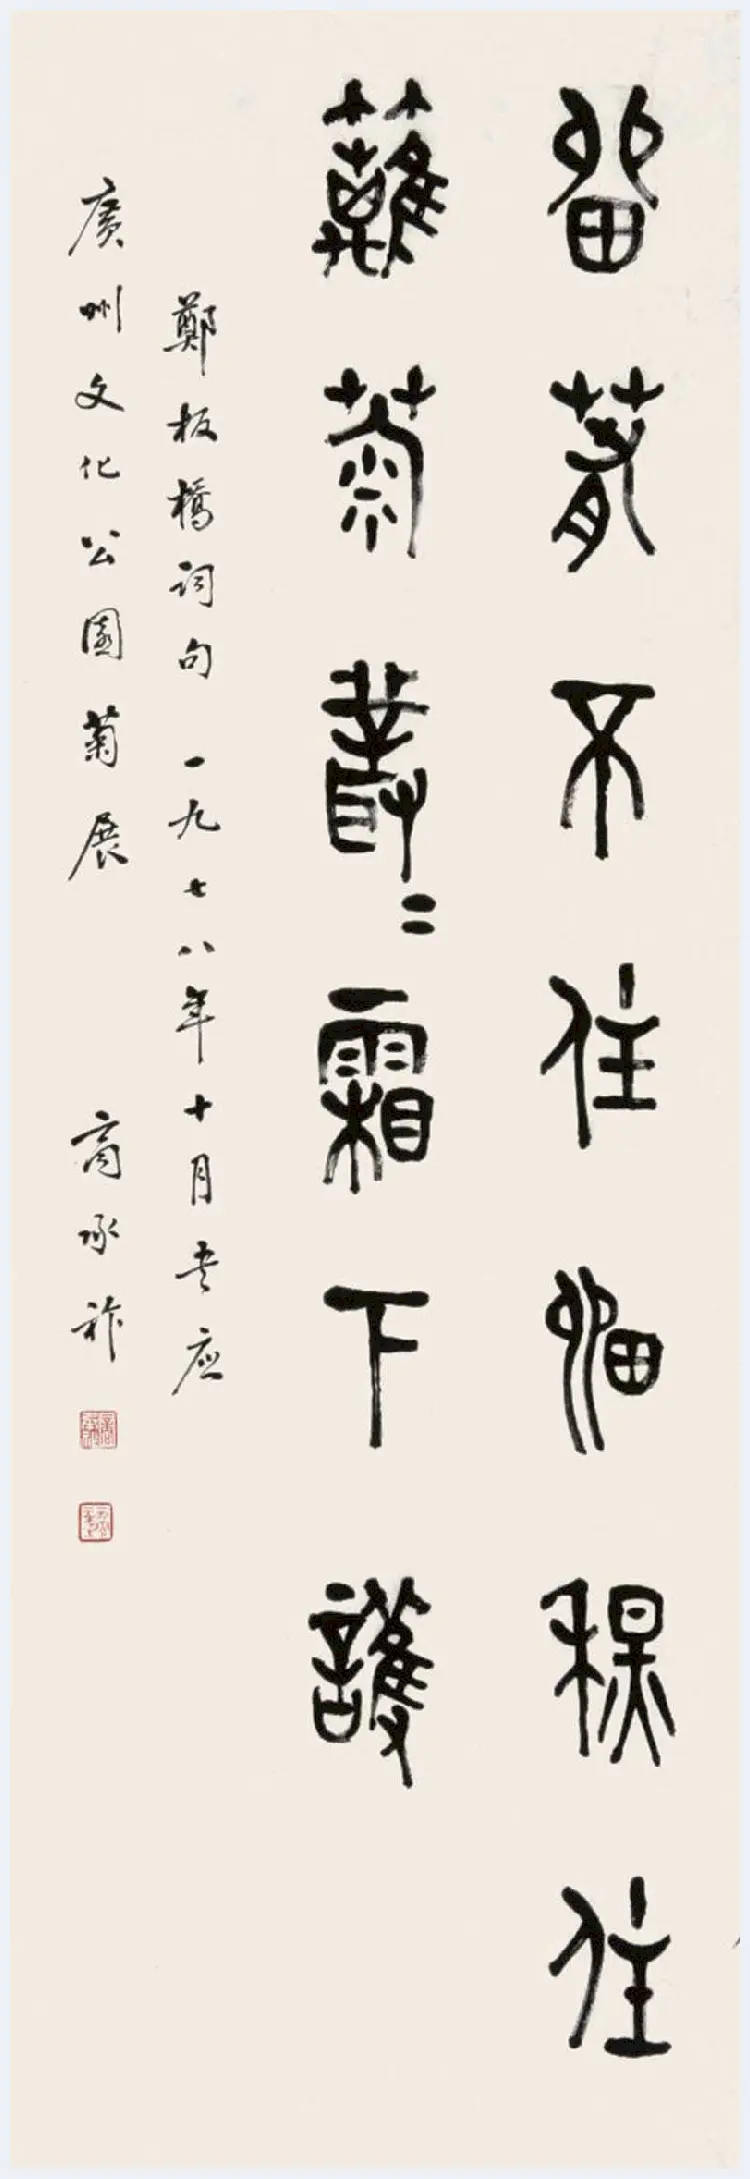 留春不住留秋住
蘺菊叢〻霜下護
鄭板橋詞句 一九七八年十月書應
廣州文化公園菊展 商承祚